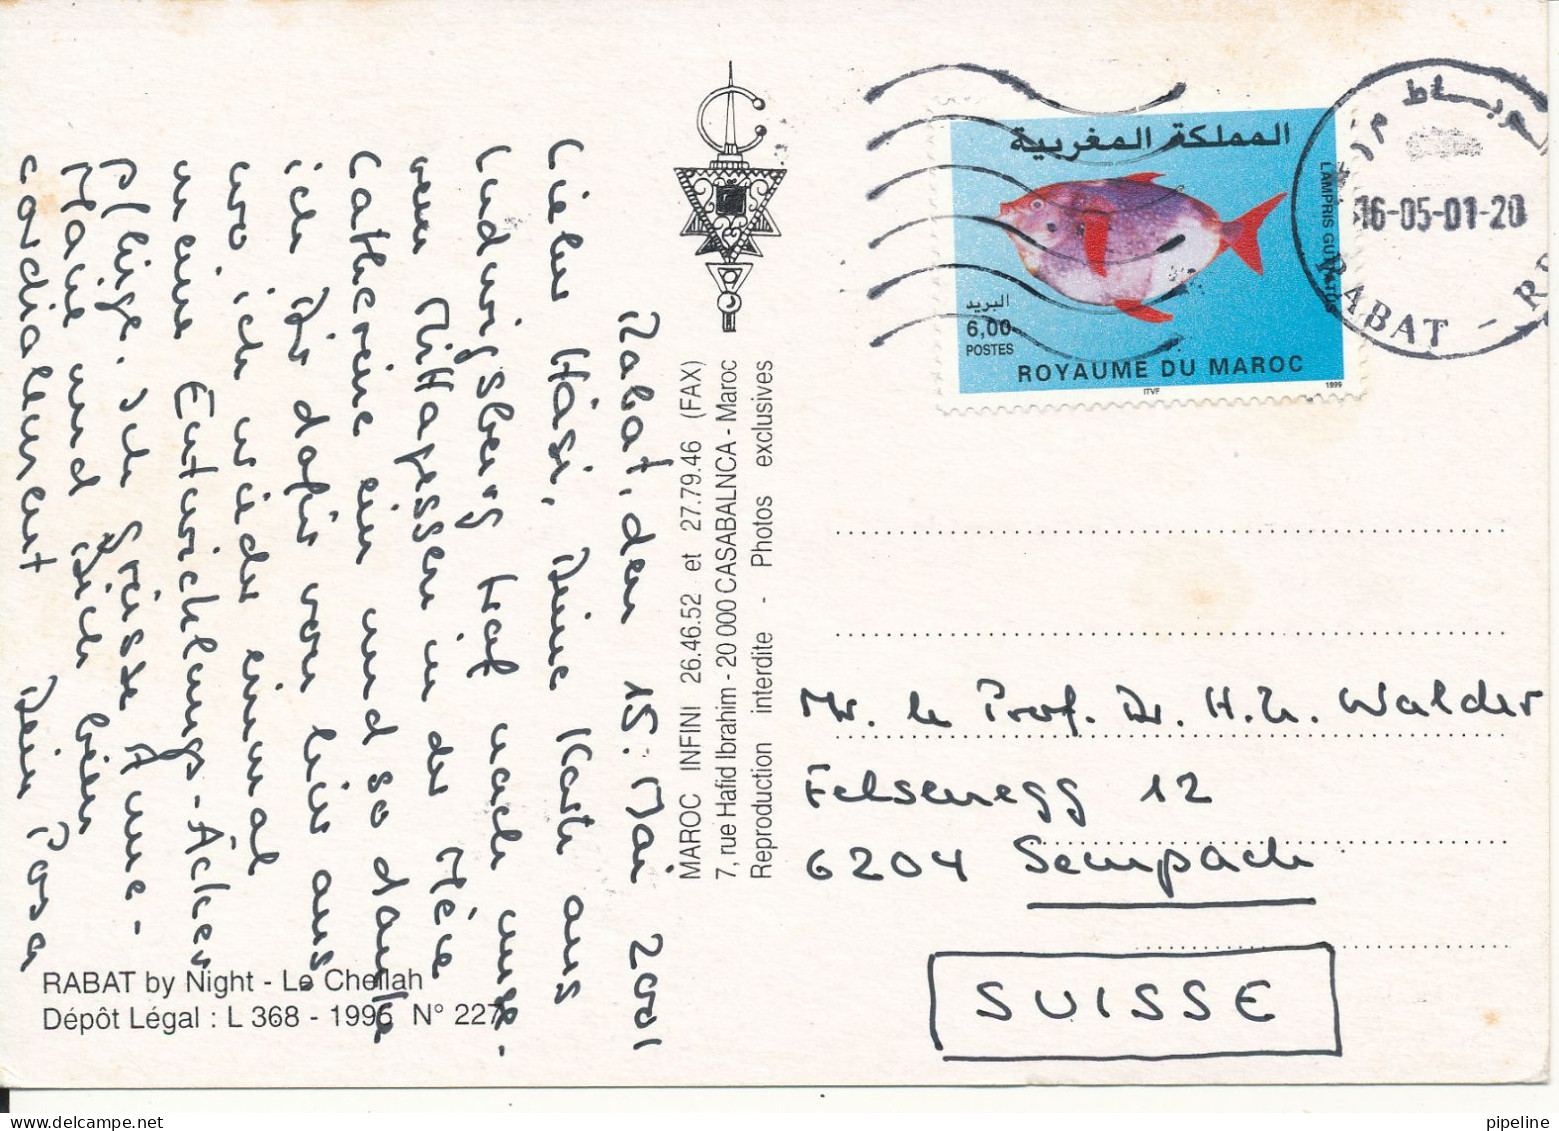 Rabat, den 15. Mai 2001
Lieber Häsi, Deine Karte aus
Ludwigsburg traf nach unse-
rem Mittagessen in der Mère
Catherine ein und so danke
ich Dir dafür von hier aus
wo ich wieder einmal
meine Entwicklungs-Äcker
pflüge. Ich grüsse Anne-
Marie und Dich
cordialement Dein
RABAT by Night - Le Chellah
Dépôt Légal : L 368 - 1996 N° 227
MAROC INFINI 26.46.52 et 27.79.46 (FAX)
7, rue Hafid Ibrahim - 20 000 CASABALNCA - Maroc
Reproduction interdite - Photos exclusives
المملكة المغربية
LAMPRIS GUTTATUS
البريد
6,00
POSTES
ROYAUME DU MAROC
ITVF
1999
16-05-01-20
RABAT - R
Mr. le Prof. Dr. H.U. Walder
Felsenegg 12
6204 Sempach
SUISSE
pipeline